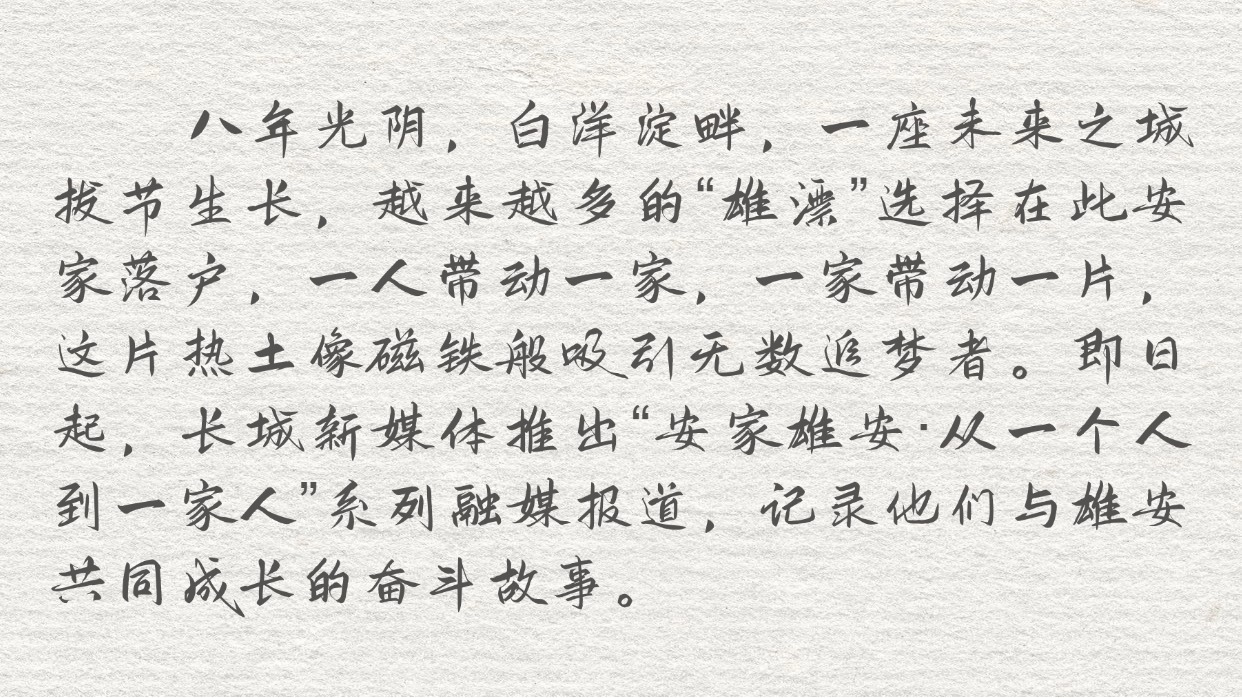 八年光阴，白洋淀畔，一座未来之城
拔节生长，越来越多的“雄漂”选择在此安
家落户，一人带动一家，一家带动一片，
这片热土像磁铁般吸引无数追梦者。即日
起，长城新媒体推出“安家雄安·从一个人
到一家人”系列融媒报道，记录他们与雄安
共同成长的奋斗故事。